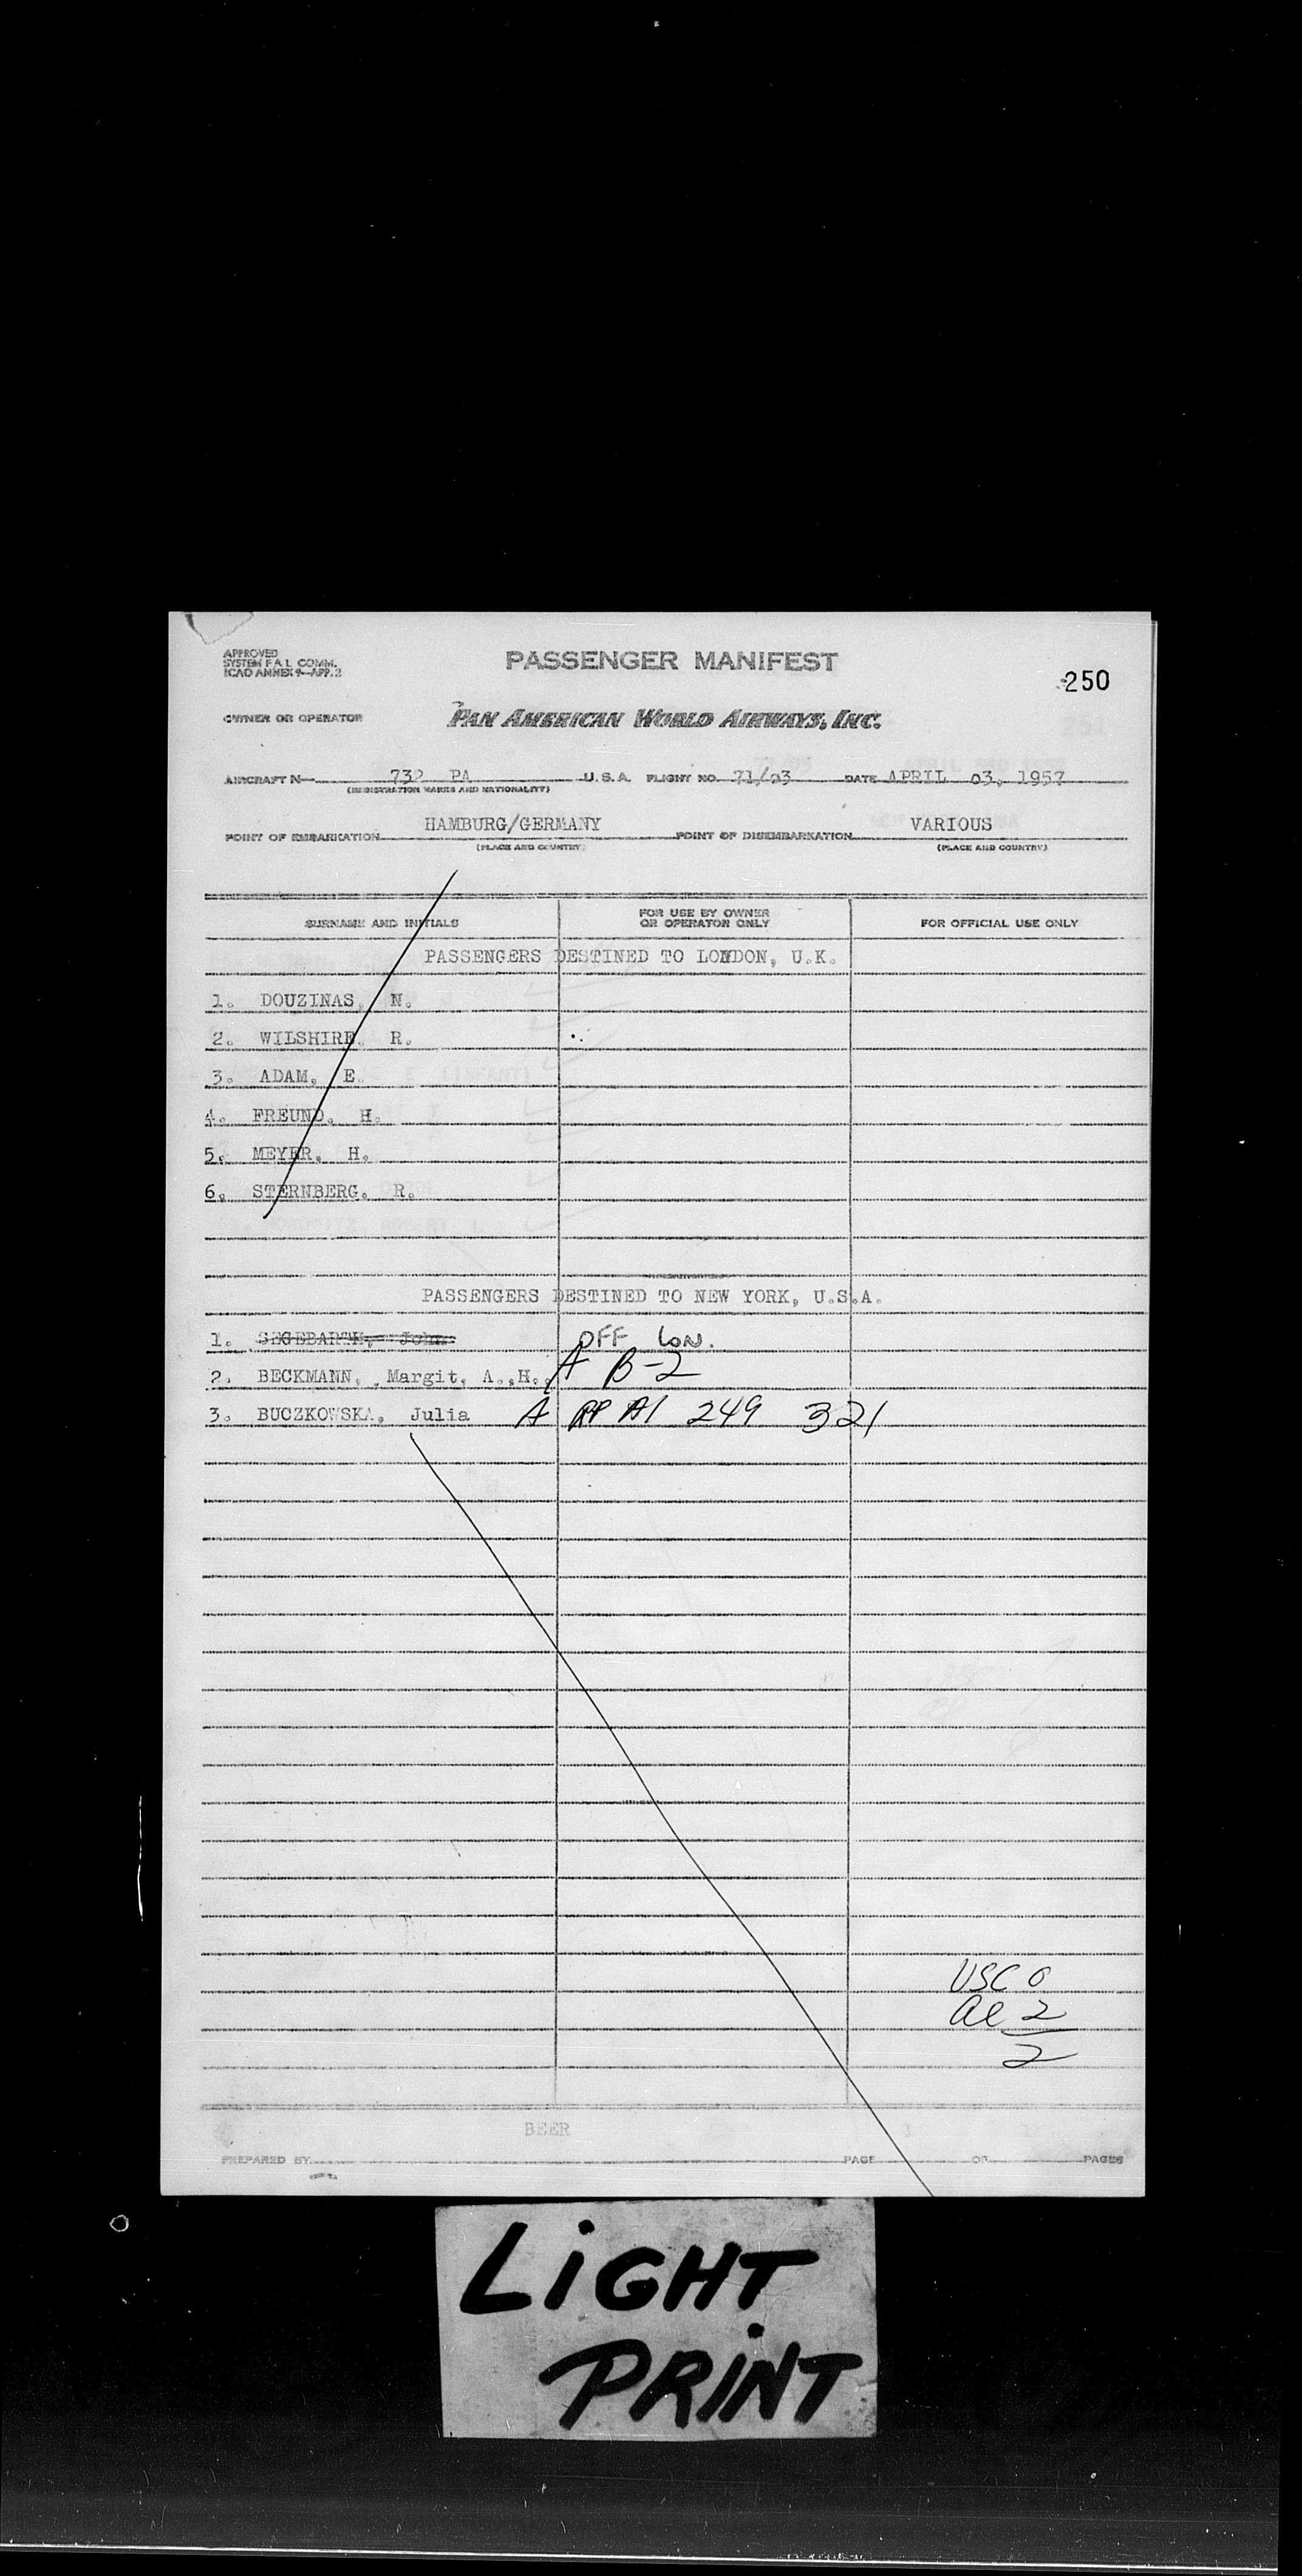 APPROVED
SYSTEM F A L COMM.
ICAO ANNEX 9—APP. 2
PASSENGER MANIFEST
250
OWNER OR OPERATOR PAN AMERICAN WORLD AIRWAYS, INC.
AIRCRAFT N— 732 PA U.S.A. FLIGHT NO. 71/03 DATE APRIL 03, 1957
(REGISTRATION MARKS AND NATIONALITY)
POINT OF EMBARKATION HAMBURG/GERMANY POINT OF DISEMBARKATION VARIOUS
(PLACE AND COUNTRY) (PLACE AND COUNTRY)
SURNAME AND INITIALS FOR USE BY OWNER OR OPERATOR ONLY FOR OFFICIAL USE ONLY
PASSENGERS DESTINED TO LONDON, U.K.
1. DOUZINAS, N.
2. WILSHIRE, R.
3. ADAM, E.
4. FREUND, H.
5. MEYER, H.
6. STERNBERG, R.
PASSENGERS DESTINED TO NEW YORK, U.S.A.
1. SEGEBARTH, John OFF LON.
2. BECKMANN, Margit, A.,H. A B-2
3. BUCZKOWSKA, Julia A PP A1 249 321
USC 0
al 2
2
BEER
PREPARED BY PAGE OF PAGES
LIGHT
PRINT